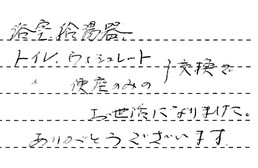 浴室、給湯器
トイレ、ウォシュレット
〃 便座のみの 交換で
お世話になりました。
ありがとうございます